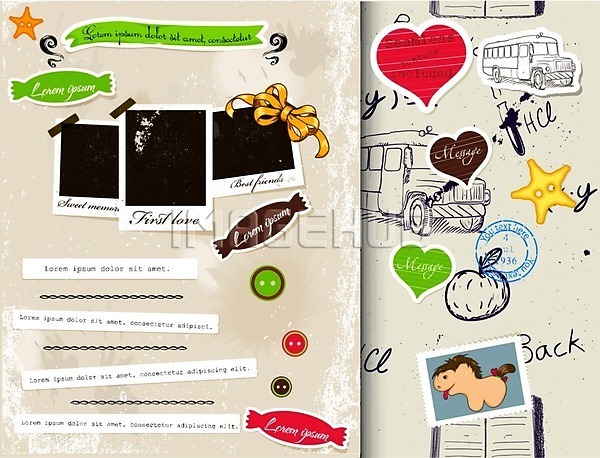 Lorem ipsum dolor sit amet, consectetur
Lorem ipsum
Sweet memor
First love
Best friends
Lorem ipsum
IMAGEHUB
Lorem ipsum dolor sit amet.
Lorem ipsum dolor sit amet, consectetur.
Lorem ipsum dolor sit amet, consectetur adipiscing.
Lorem ipsum dolor sit amet, consectetur.
Lorem ipsum
Seamless
included
HCl
y,
Message
y
You text here
4
Jul
1936
Message
Cl
Back